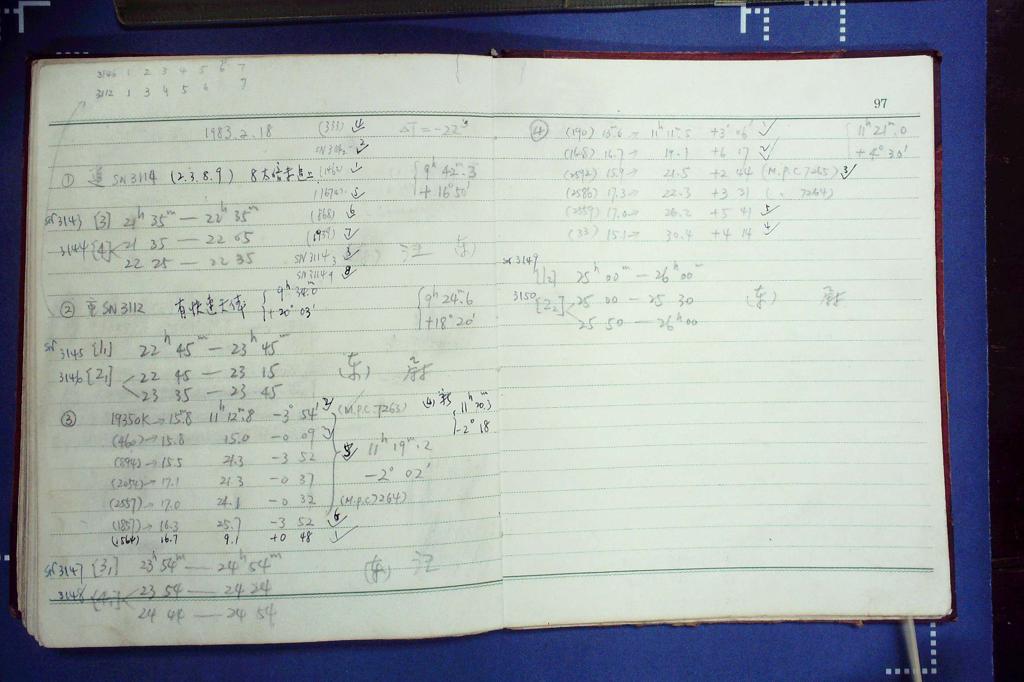 3146 1 2 3 4 5 6 7
3112 1 3 4 5 6 7
1983.2.18 (333) ΔT=-22ˢ
① SN3114 (2.3.8.9) (1462) 9ʰ42ᵐ.3
(1674) +16°50′
SN3143 [3] 21ʰ35ᵐ — 22ʰ35ᵐ (1868)
3144 [4] 21 35 — 22 05 (1939) 江 (东)
22 25 — 22 35 SN3114₃
SN3114₉
② SN3112 有快速天体 9ʰ34ᵐ.0 9ʰ24ᵐ.6
+20°03′ +18°20′
SN3145 [1₁] 22ʰ45ᵐ — 23ʰ45ᵐ
3146 [2₁] 22 45 — 23 15 (东)
23 35 — 23 45
③ 1935OK → 15ᵐ.8 11ʰ12ᵐ.8 -3°54′ (M.P.C.7263) 11ʰ20.3
(460) → 15.8 15.0 -0 09 -2°18
(894) → 15.5 21.3 -3 52 11ʰ19ᵐ.2
(2054) → 17.1 21.3 -0 37 -2°02′
(2557) → 17.0 24.1 -0 32 (M.P.C.7264)
(1857) → 16.3 25.7 -3 52
(1564) 16.7 9.1 +0 48
SN3147 [3₁] 23ʰ54ᵐ — 24ʰ54ᵐ (东) 江
3148 23 54 — 24 24
24 44 — 24 54
97
④ (190) 15ᵐ.6 → 11ʰ11ᵐ.5 +3°06′ 11ʰ21ᵐ.0
(1658) 16.7 → 19.1 +6 17 +4°30′
(2592) 15.9 → 21.5 +2 44 (M.P.C.7265)
(2586) 17.3 → 22.3 +3 31 ( 7264)
(2559) 17.0 → 26.2 +5 41
(33) 15.1 → 30.4 +4 14
SN3149 [1₂] 25ʰ00ᵐ — 26ʰ00ᵐ
3150 [2₂] 25 00 — 25 30 (东)
25 50 — 26ʰ00